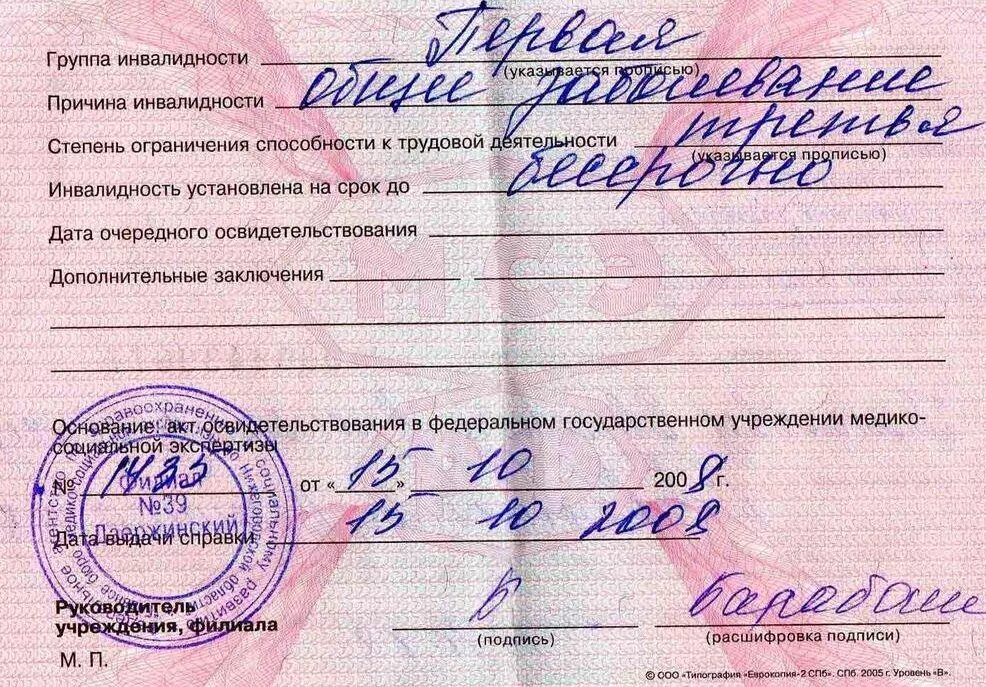 Группа инвалидности Первая
(указывается прописью)
Причина инвалидности общее заболевание
Степень ограничения способности к трудовой деятельности третья
(указывается прописью)
Инвалидность установлена на срок до бессрочно
Дата очередного освидетельствования
Дополнительные заключения
МСЭ
Основание: акт освидетельствования в федеральном государственном учреждении медико-
социальной экспертизы
№ 1433 от «15» 10 2008 г.
Филиал
№39
Дзержинский
Дата выдачи справки 15 10 2008
Руководитель
учреждения, филиала
(подпись) (расшифровка подписи)
М. П.
© ООО «Типография «Еврокопия-2 СПб». СПб. 2005 г. Уровень «В».